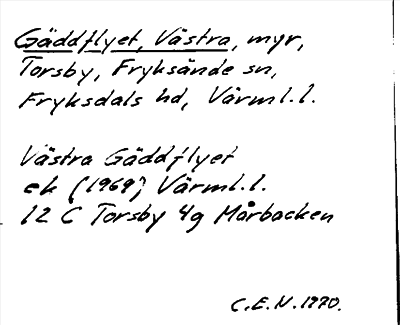 Gäddflyet, Västra, myr,
Torsby, Fryksände sn,
Fryksdals hd, Värml.l.
Västra Gäddflyet
ek (1969) Värml.l.
12 C Torsby 4g Mårbacken
C.E.N. 1970.